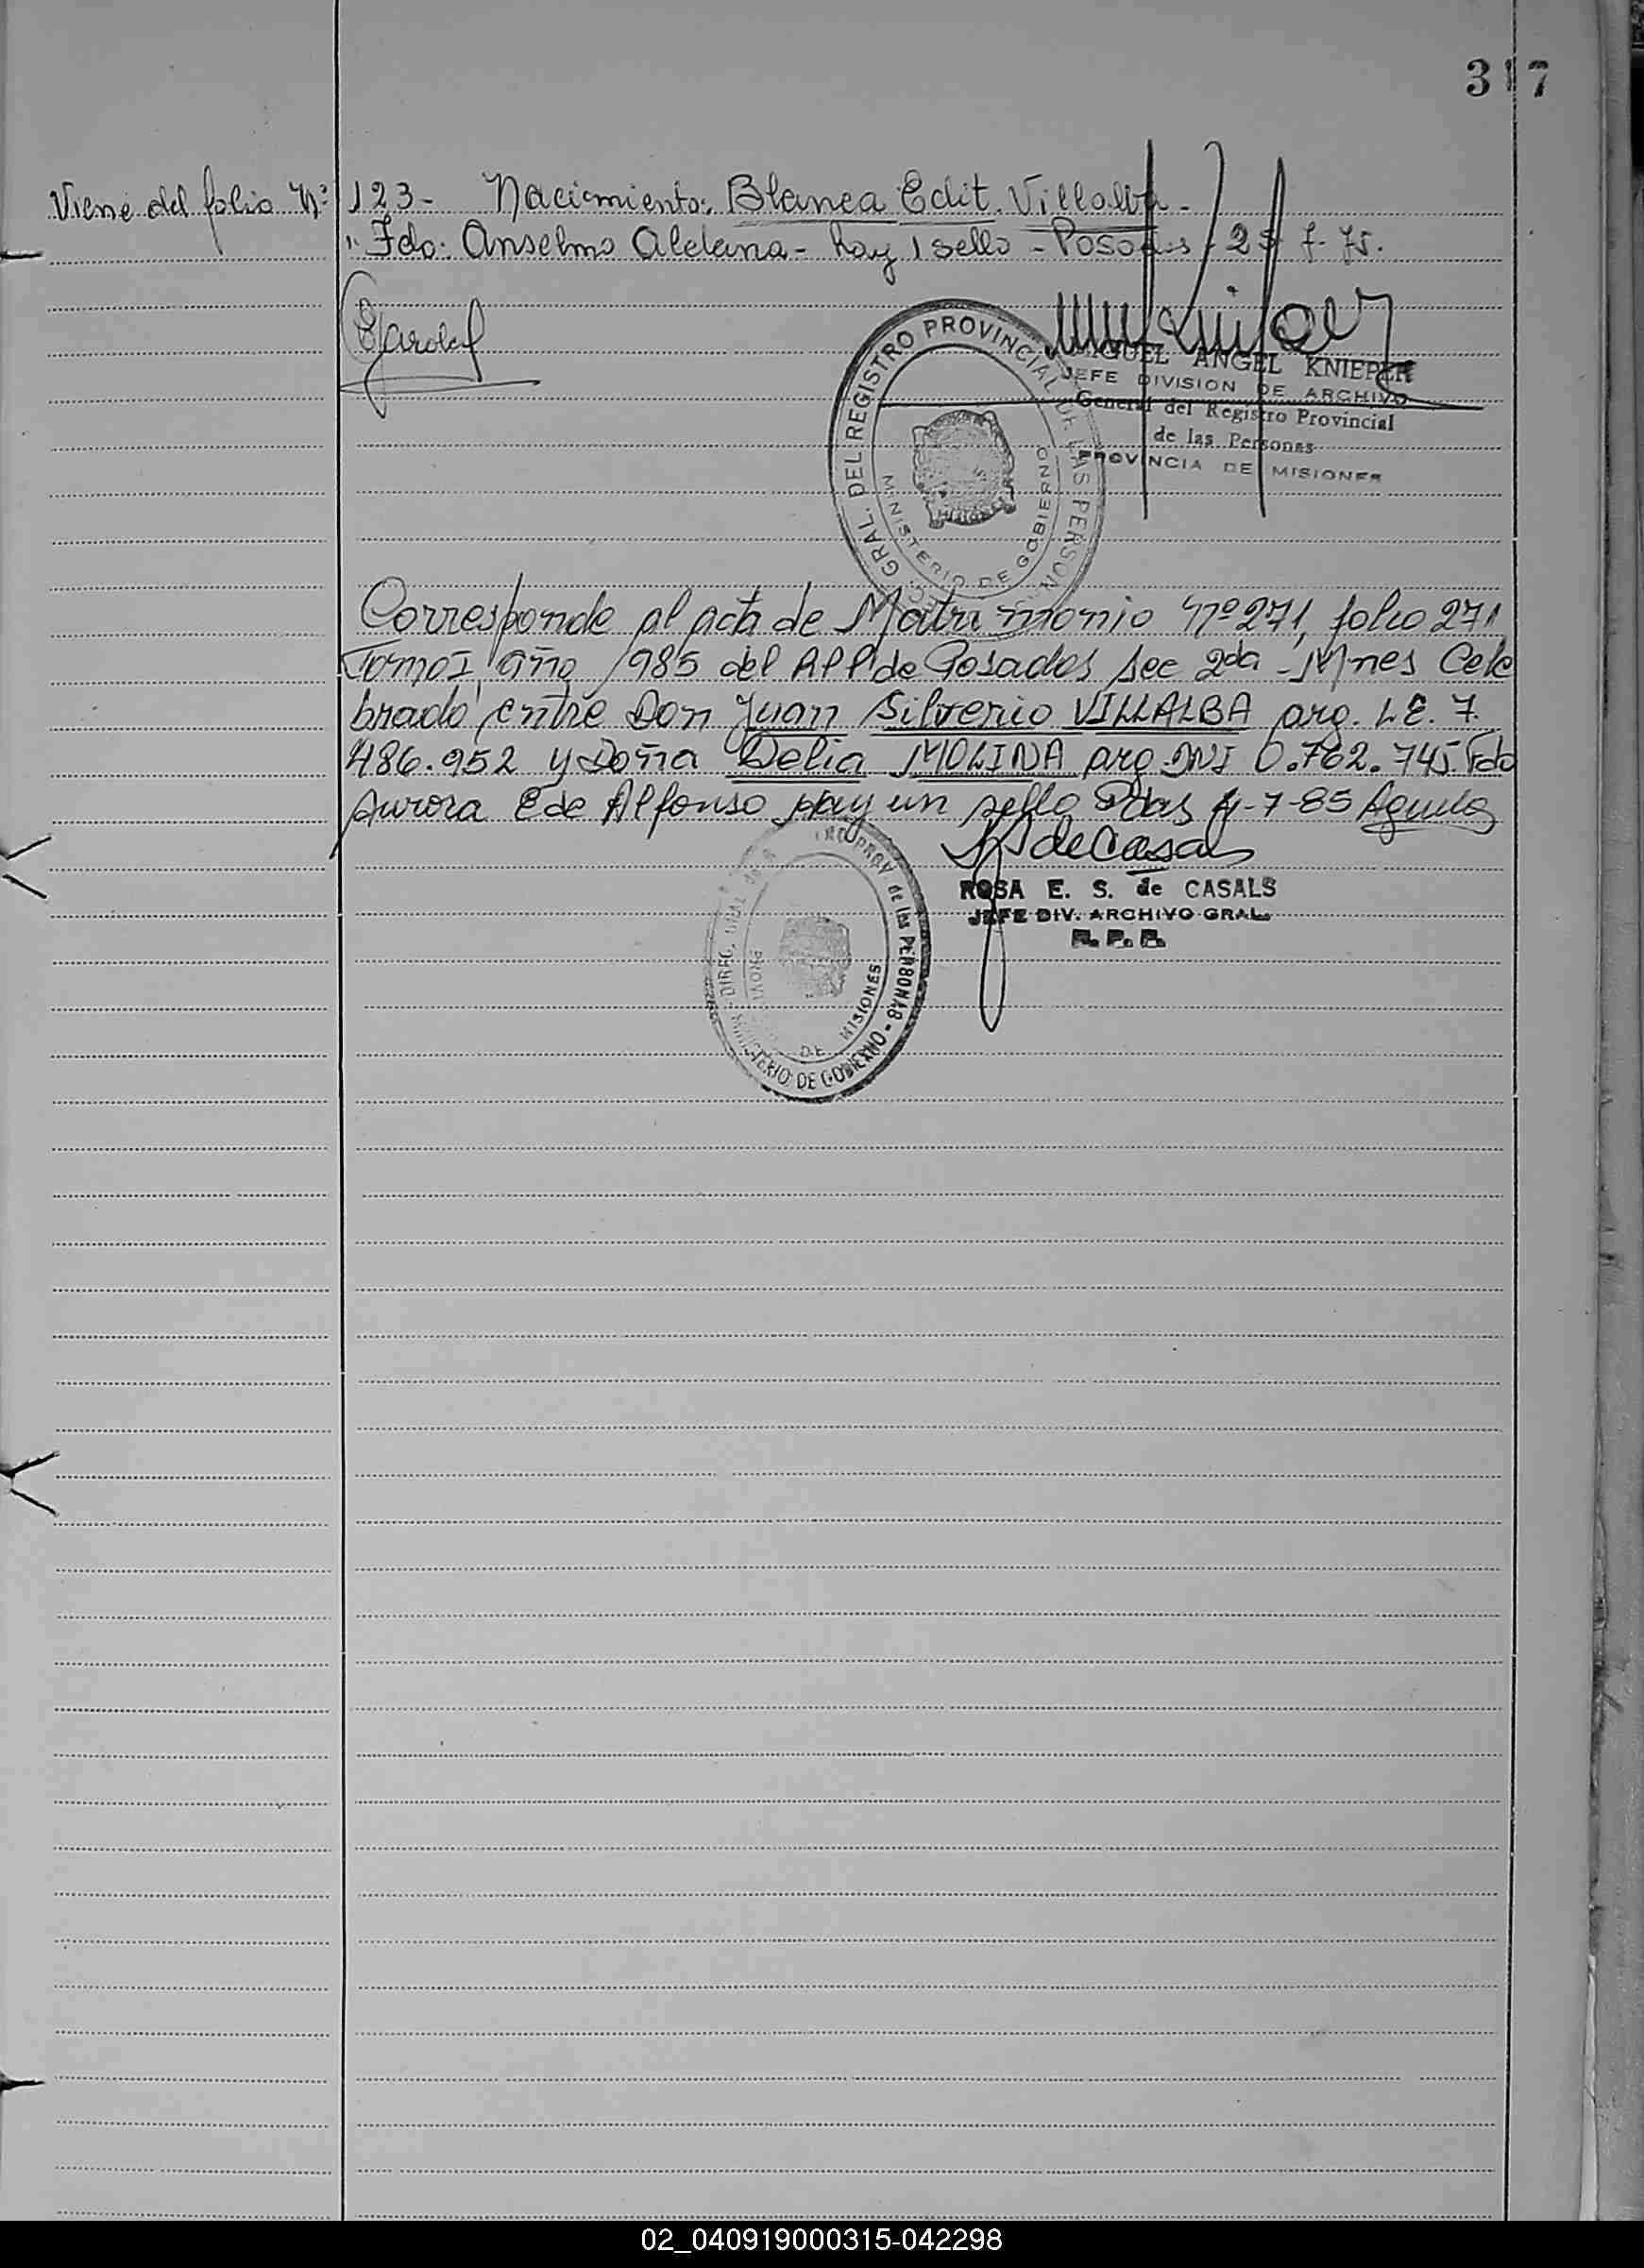 317
Viene del folio Nº 123- Nacimiento: Blanca Edit Villalba-
" Fdo: Anselmo Aldana - hay 1 sello - Posadas - 25 7-75.
MIGUEL ANGEL KNIEPER
JEFE DIVISION DE ARCHIVO
General del Registro Provincial
de las Personas
PROVINCIA DE MISIONES
GRAL. DEL REGISTRO PROVINCIAL DE LAS PERSON
MINISTERIO DE GOBIERNO
Corresponde al acta de Matrimonio Nº 271, folio 271
Tomo I, año 1985 del RPP de Posadas sec 2da - Mnes Cele
brado entre Don Juan Silverio VILLALBA arg. L.E. 7.
486.952 y Doña Delia MOLINA arg DNI 0.762.745 Fdo
Aurora E de Alfonso hay un sello Pdas 4-7-85
de Casals
ROSA E. S. de CASALS
JEFE DIV. ARCHIVO GRAL.
R. P. P.
DIREC. GRAL de PROV de las PERSONAS - MINISTERIO DE GOBIERNO
PROVINCIA DE MISIONES
02_040919000315-042298